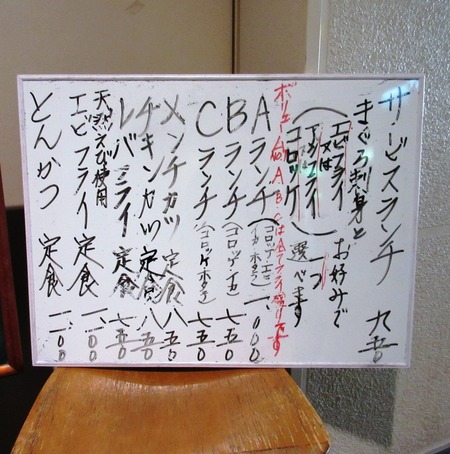 サービスランチ 九五〇
まぐろ刺身と
(エビフライ 又は アジフライ コロッケ) お好みで 一つ 選べます
Aランチ (コロッケ・エビ イカ ホタテ) 一、〇〇〇
Bランチ (コロッケ・イカ) 七五〇
Cランチ (コロッケ ホタテ) 七五〇
メンチカツ 定食 八五〇
チキンカツ 定食 八五〇
レバーフライ 定食 七五〇
天然えび使用
エビフライ 定食 一、一〇〇
とんかつ 定食 一、一〇〇